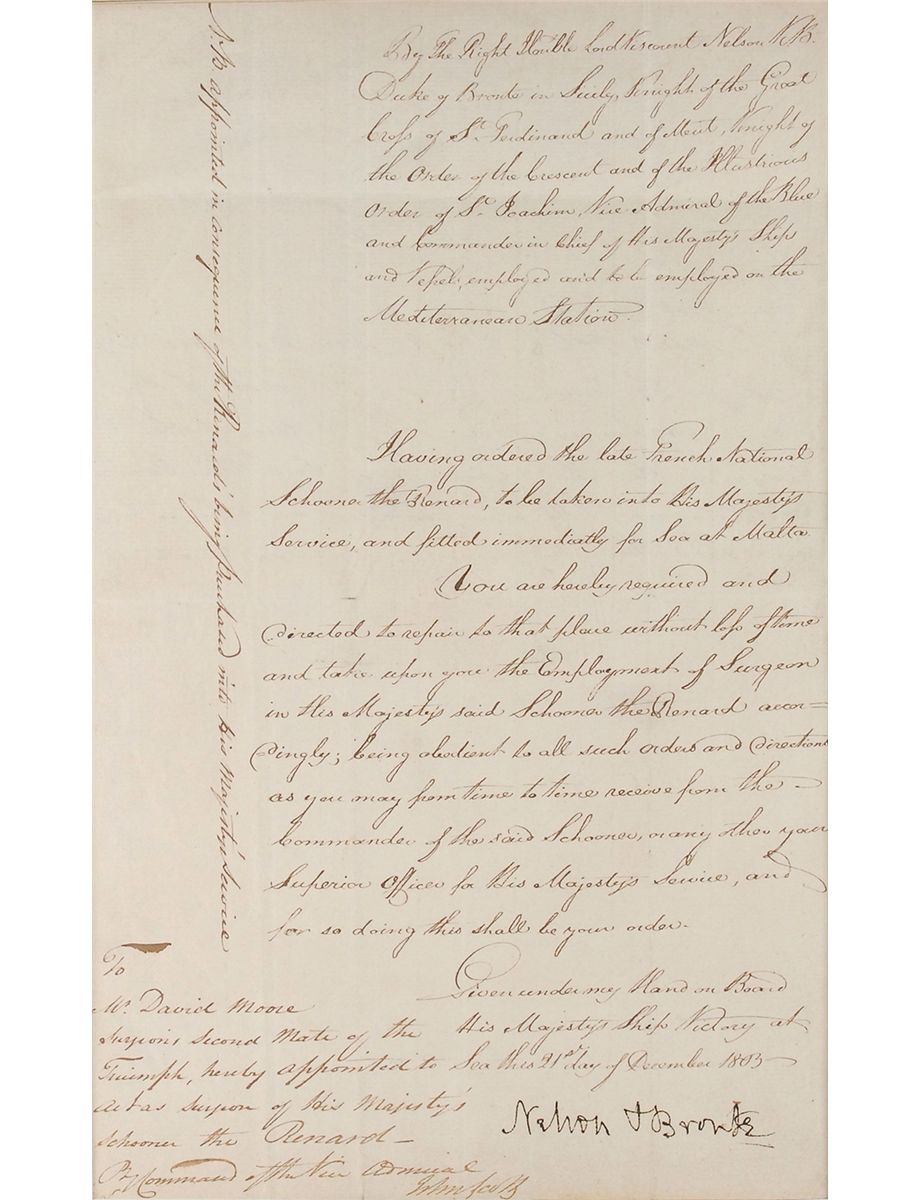 By The Right Honble Lord Viscount Nelson K.B.
Duke of Bronte in Sicily, Knight of the Great
Cross of St. Ferdinand and of Merit, Knight of
the Order of the Crescent and of the Illustrious
Order of St. Joachim, Vice Admiral of the Blue
and Commander in Chief of His Majesty's Ship
and Vessels, employed and to be employed on the
Mediterranean Station.
Having ordered the late French National
Schooner the Renard, to be taken into His Majesty's
Service, and fitted immediatly for Sea at Malta.
You are hereby required and
directed to repair to that place without loss of time
and take upon you the Employment of Surgeon
in His Majesty's said Schooner the Renard accor=
dingly; being obedient to all such orders and directions
as you may from time to time receive from the
Commander of the said Schooner, or any other your
Superior Officer for His Majesty's Service, and
for so doing this shall be your order.
Given under my Hand on Board
His Majesty's Ship Victory at
Sea this 21st day of December 1803
Nelson & Bronte
To
Mr. David Moore
Surgeons Second Mate of the
Triumph, hereby appointed to
act as surgeon of His Majesty's
schooner the Renard
By Command of the Vice Admiral
John Scott
N.B. appointed in consequence of the Renard's being purchased into His Majesty's Service